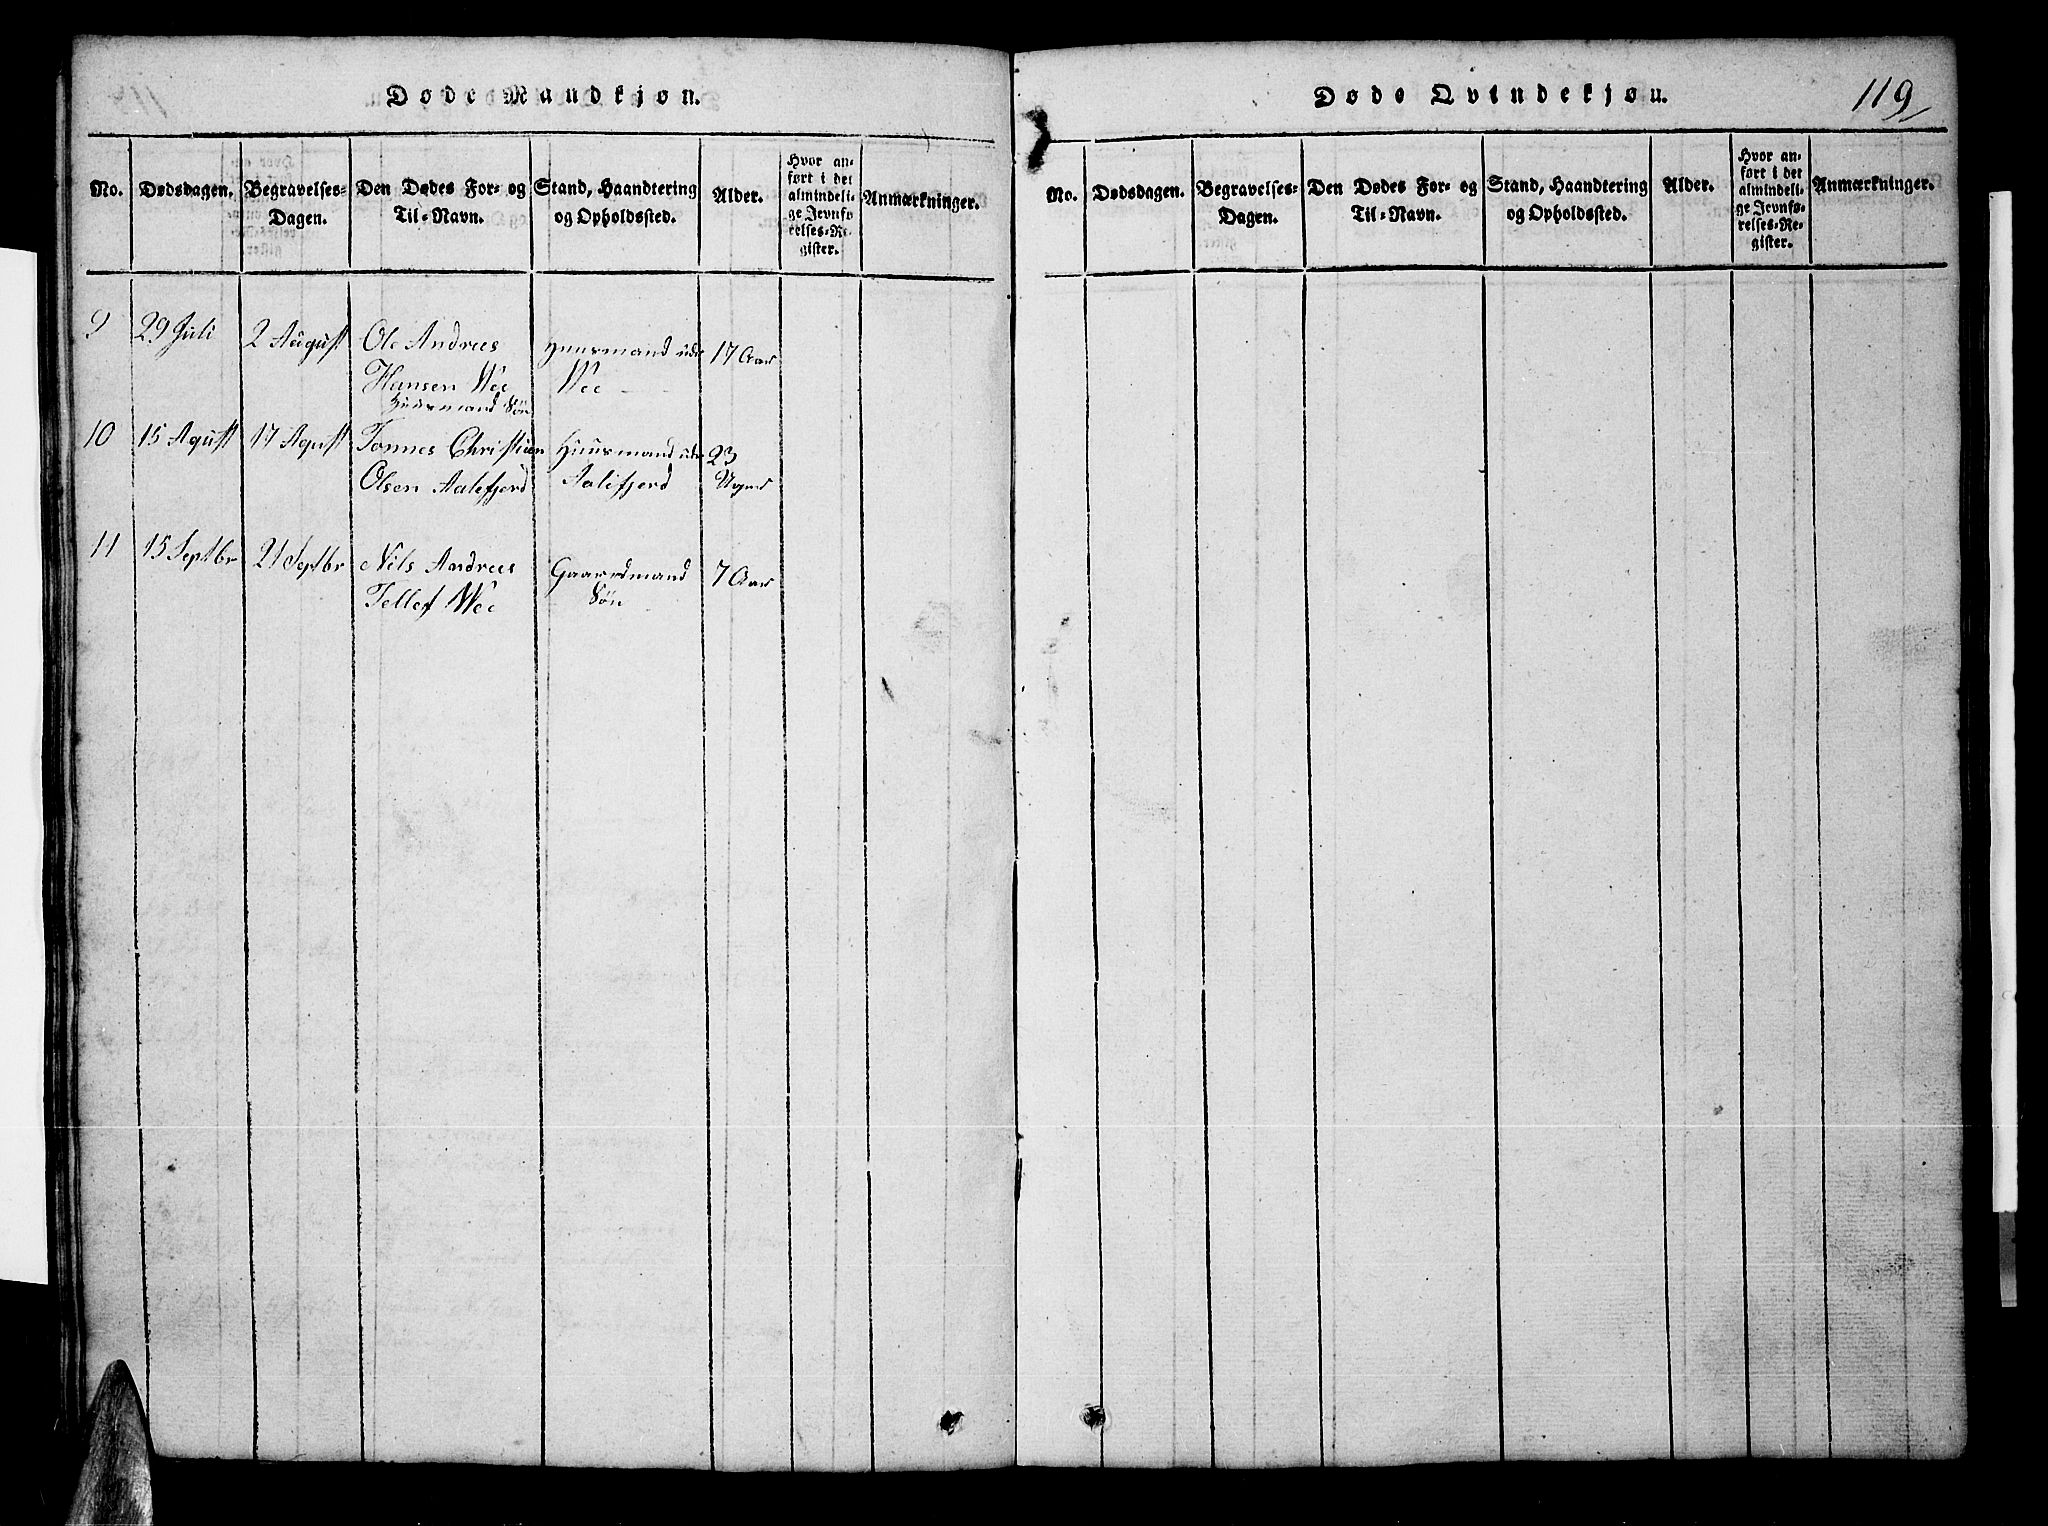 Døde Mandkjøn.
No.
Dødsdagen.
Begravelses-
Dagen.
Den Dødes For- og
Til-Navn.
Stand, Haandtering
og Opholdssted.
Alder.
Hvor an-
ført i det
almindeli-
ge Jevnfø-
relses-Re-
gister.
Anmærkninger.
9
29 Juli
2 August
Ole Andrees
Hansen Wee
Huusmand Søn
Huusmand und
Wee
17 Aar
10
15 Agust
17 Agust
Tonnes Christian
Olsen Aalefjerd
Huusmand und
Aalifjerd
23
11
15 Septbr
21 Septbr
Nils Andrees
Tellef Wee
Gaardmand
Søn
7 Aar
Døde Qvindekjøn.
119
No.
Dødsdagen.
Begravelses-
Dagen.
Den Dødes For- og
Til-Navn.
Stand, Haandtering
og Opholdssted.
Alder.
Hvor an-
ført i det
almindeli-
ge Jevnfø-
relses-Re-
gister.
Anmærkninger.